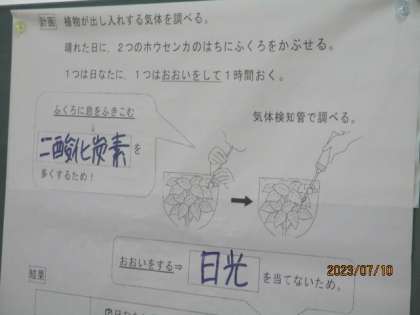 計画 植物が出し入れする気体を調べる。
晴れた日に、2つのホウセンカのはちにふくろをかぶせる。
1つは日なたに、1つはおおいをして1時間おく。
ふくろに息をふきこむ
↓
二酸化炭素を
多くするため!
気体検知管で調べる。
➡
おおいをする⇒ 日光 を当てないため。
結果
2023/07/10